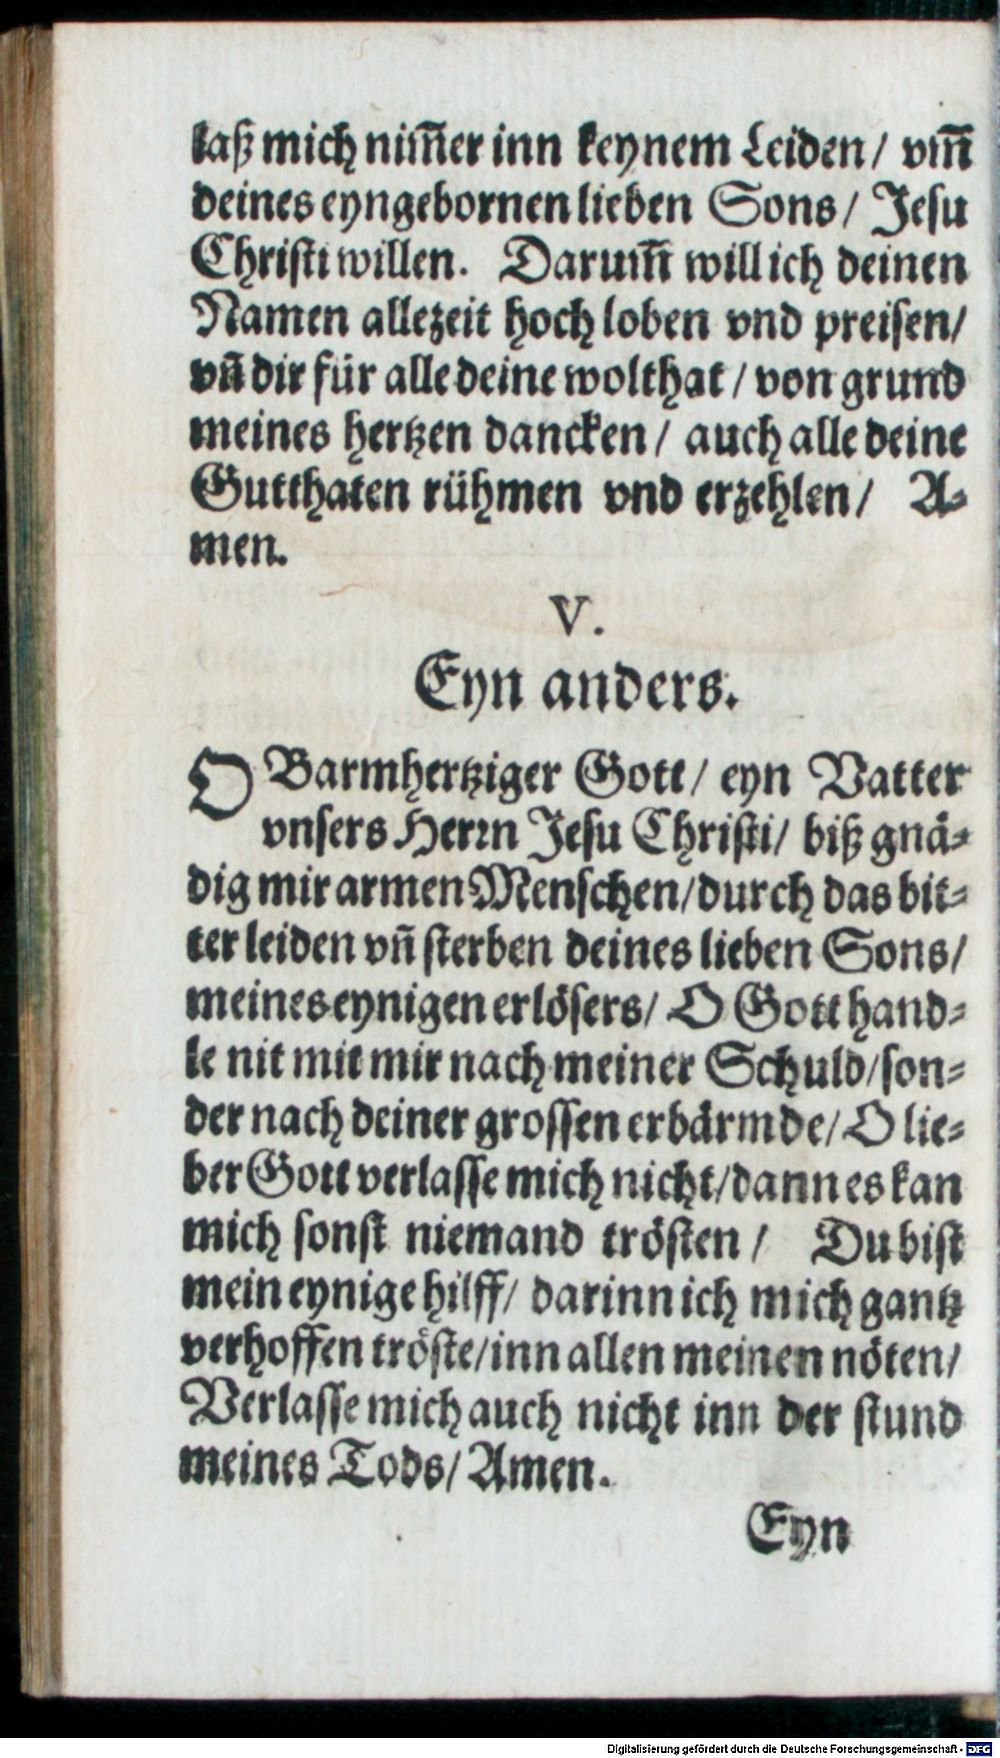 laß mich nim̅er inn keynem Leiden / vm̅
deines eyngebornen lieben Sons / Jesu
Christi willen. Darum̅ will ich deinen
Namen allezeit hoch loben vnd preisen /
vn̅ dir für alle deine wolthat / von grund
meines hertzen dancken / auch alle deine
Gutthaten rühmen vnd erzehlen / A⸗
men.
V.
Eyn anders.
O Barmhertziger Gott / eyn Vatter
vnsers Herꝛn Jesu Christi / biß gnä⸗
dig mir armen Menschen / durch das bit⸗
ter leiden vn̅ sterben deines lieben Sons /
meines eynigen erlösers / O Gott hand⸗
le nit mit mir nach meiner Schuld / son⸗
der nach deiner grossen erbärmde / O lie⸗
ber Gott verlasse mich nicht / dann es kan
mich sonst niemand trösten / Du bist
mein eynige hilff / darinn ich mich gantz
verhoffen tröste / inn allen meinen nöten /
Verlasse mich auch nicht inn der stund
meines Tods / Amen.
Eyn
Digitalisierung gefördert durch die Deutsche Forschungsgemeinschaft - DFG